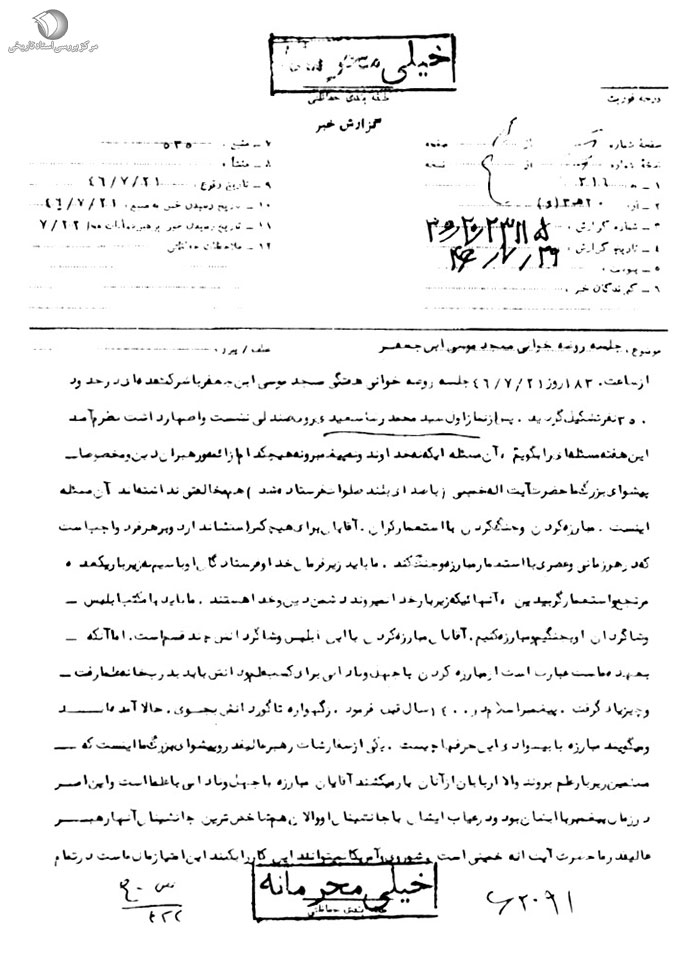 مرکز بررسی اسناد تاریخی
خیلی محرمانه
طبقه بندی حفاظتی
درجه فوریت
گزارش خبر
صفحه شماره از صفحه
نسخه شماره از نسخه
۱ - ۲۱۶
۲ - از ۲۰ ه‍ ۳
۳ - شماره گزارش
۴ - تاریخ گزارش
۵ - پیوست
۶ - گیرندگان خبر
۷ - منبع ۵۳۵
۸ - منشأ
۹ - تاریخ وقوع ۴۶/۷/۲۱
۱۰ - تاریخ رسیدن خبر به منبع ۴۶/۷/۲۱
۱۱ - تاریخ رسیدن خبر ۷/۲۲
۱۲ - ملاحظات حفاظتی
موضوع : جلسه روضه خوانی مسجد موسی ابن جعفر
از ساعت ۱۸۳۰ روز ۴۶/۷/۲۱ جلسه روضه خوانی هفتگی مسجد موسی ابن جعفر با شرکت عده ای در حدود
۳۵۰ نفر تشکیل گردید . پس از نماز اول سید محمد رضا سعیدی روی صندلی نشست و اظهار داشت بنظرم آمد
این هفته مسئله ای را بگویم ، آن مسئله اینکه نه خداوند و نه پیغمبر و نه هیچکدام از ائمه و رهبران دین و مخصوصا
پیشوای بزرگ ما حضرت آیت اله خمینی ( با صدای بلند صلوات فرستاده شد ) هم مخالفتی نداشته اند آن مسئله
اینست . مبارزه کردن و جنگ کردن با استعمارگران . آقایان برای هیچ کس استثنا ندارد و بر هر فرد واجب است
که در هر زمانی و عصری با استعمار مبارزه و جنگ کند . ما باید زیر فرمان خدا و فرستادگان او باشیم نه زیر بار یکعده
مرتجع و استعمارگر بیدین . آنهائیکه زیر بار خدا نمیروند دشمن دین و خدا هستند . ما باید با مکتب ابلیس
و شاگردان او بجنگیم و مبارزه کنیم . آقایان مبارزه کردن با این ابلیس و شاگردانش چند قسم است . اما آنکه
بعهده ماست عبارت است از مبارزه کردن با جهل و نادانی برای کسب علم و دانش باید بدرب خانه علما رفت
و چیز یاد گرفت . پیغمبر اسلام در ۱۴۰۰ سال قبل فرمود . ز گهواره تا گور دانش بجوی . حالا آمده اند
و میگویند مبارزه با بیسوادی این حرفها چیست . یکی از سفارشات رهبر عالیقدر و پیشوای بزرگ ما اینست که
مسلمین زیر بار علم بروند والا اربابان از آنان بار میکشند آقایان مبارزه با جهل و نادانی با علما است و این امر
در زمان پیغمبر با ایشان بود و در غیاب ایشان با جانشینان او و الان هم شاخص ترین جانشینان آنها رهبر
عالیقدر ما حضرت آیت اله خمینی است . شوروی و آمریکا میتوانند این کار را بکنند این امتیاز مال ماست در تمام
خیلی محرمانه
طبقه بندی حفاظتی